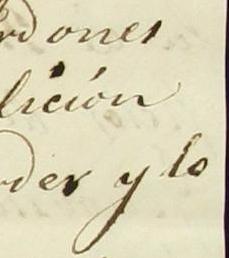 rdones
lición
rder y lo